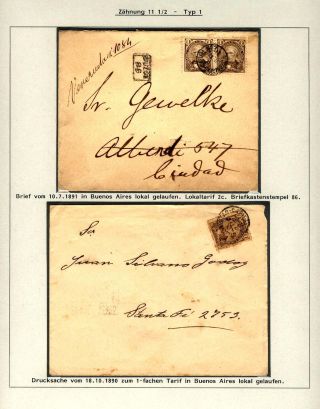 Zähnung 11 1/2 - Typ 1
Sr. Gewelke
Alberdi 547
Ciudad
Brief vom 10.7.1891 in Buenos Aires lokal gelaufen. Lokaltarif 2c. Briefkastenstempel 86.
Sor
Juan Silvano Godoy
Santa Fé 2753.
Drucksache vom 18.10.1890 zum 1-fachen Tarif in Buenos Aires lokal gelaufen.